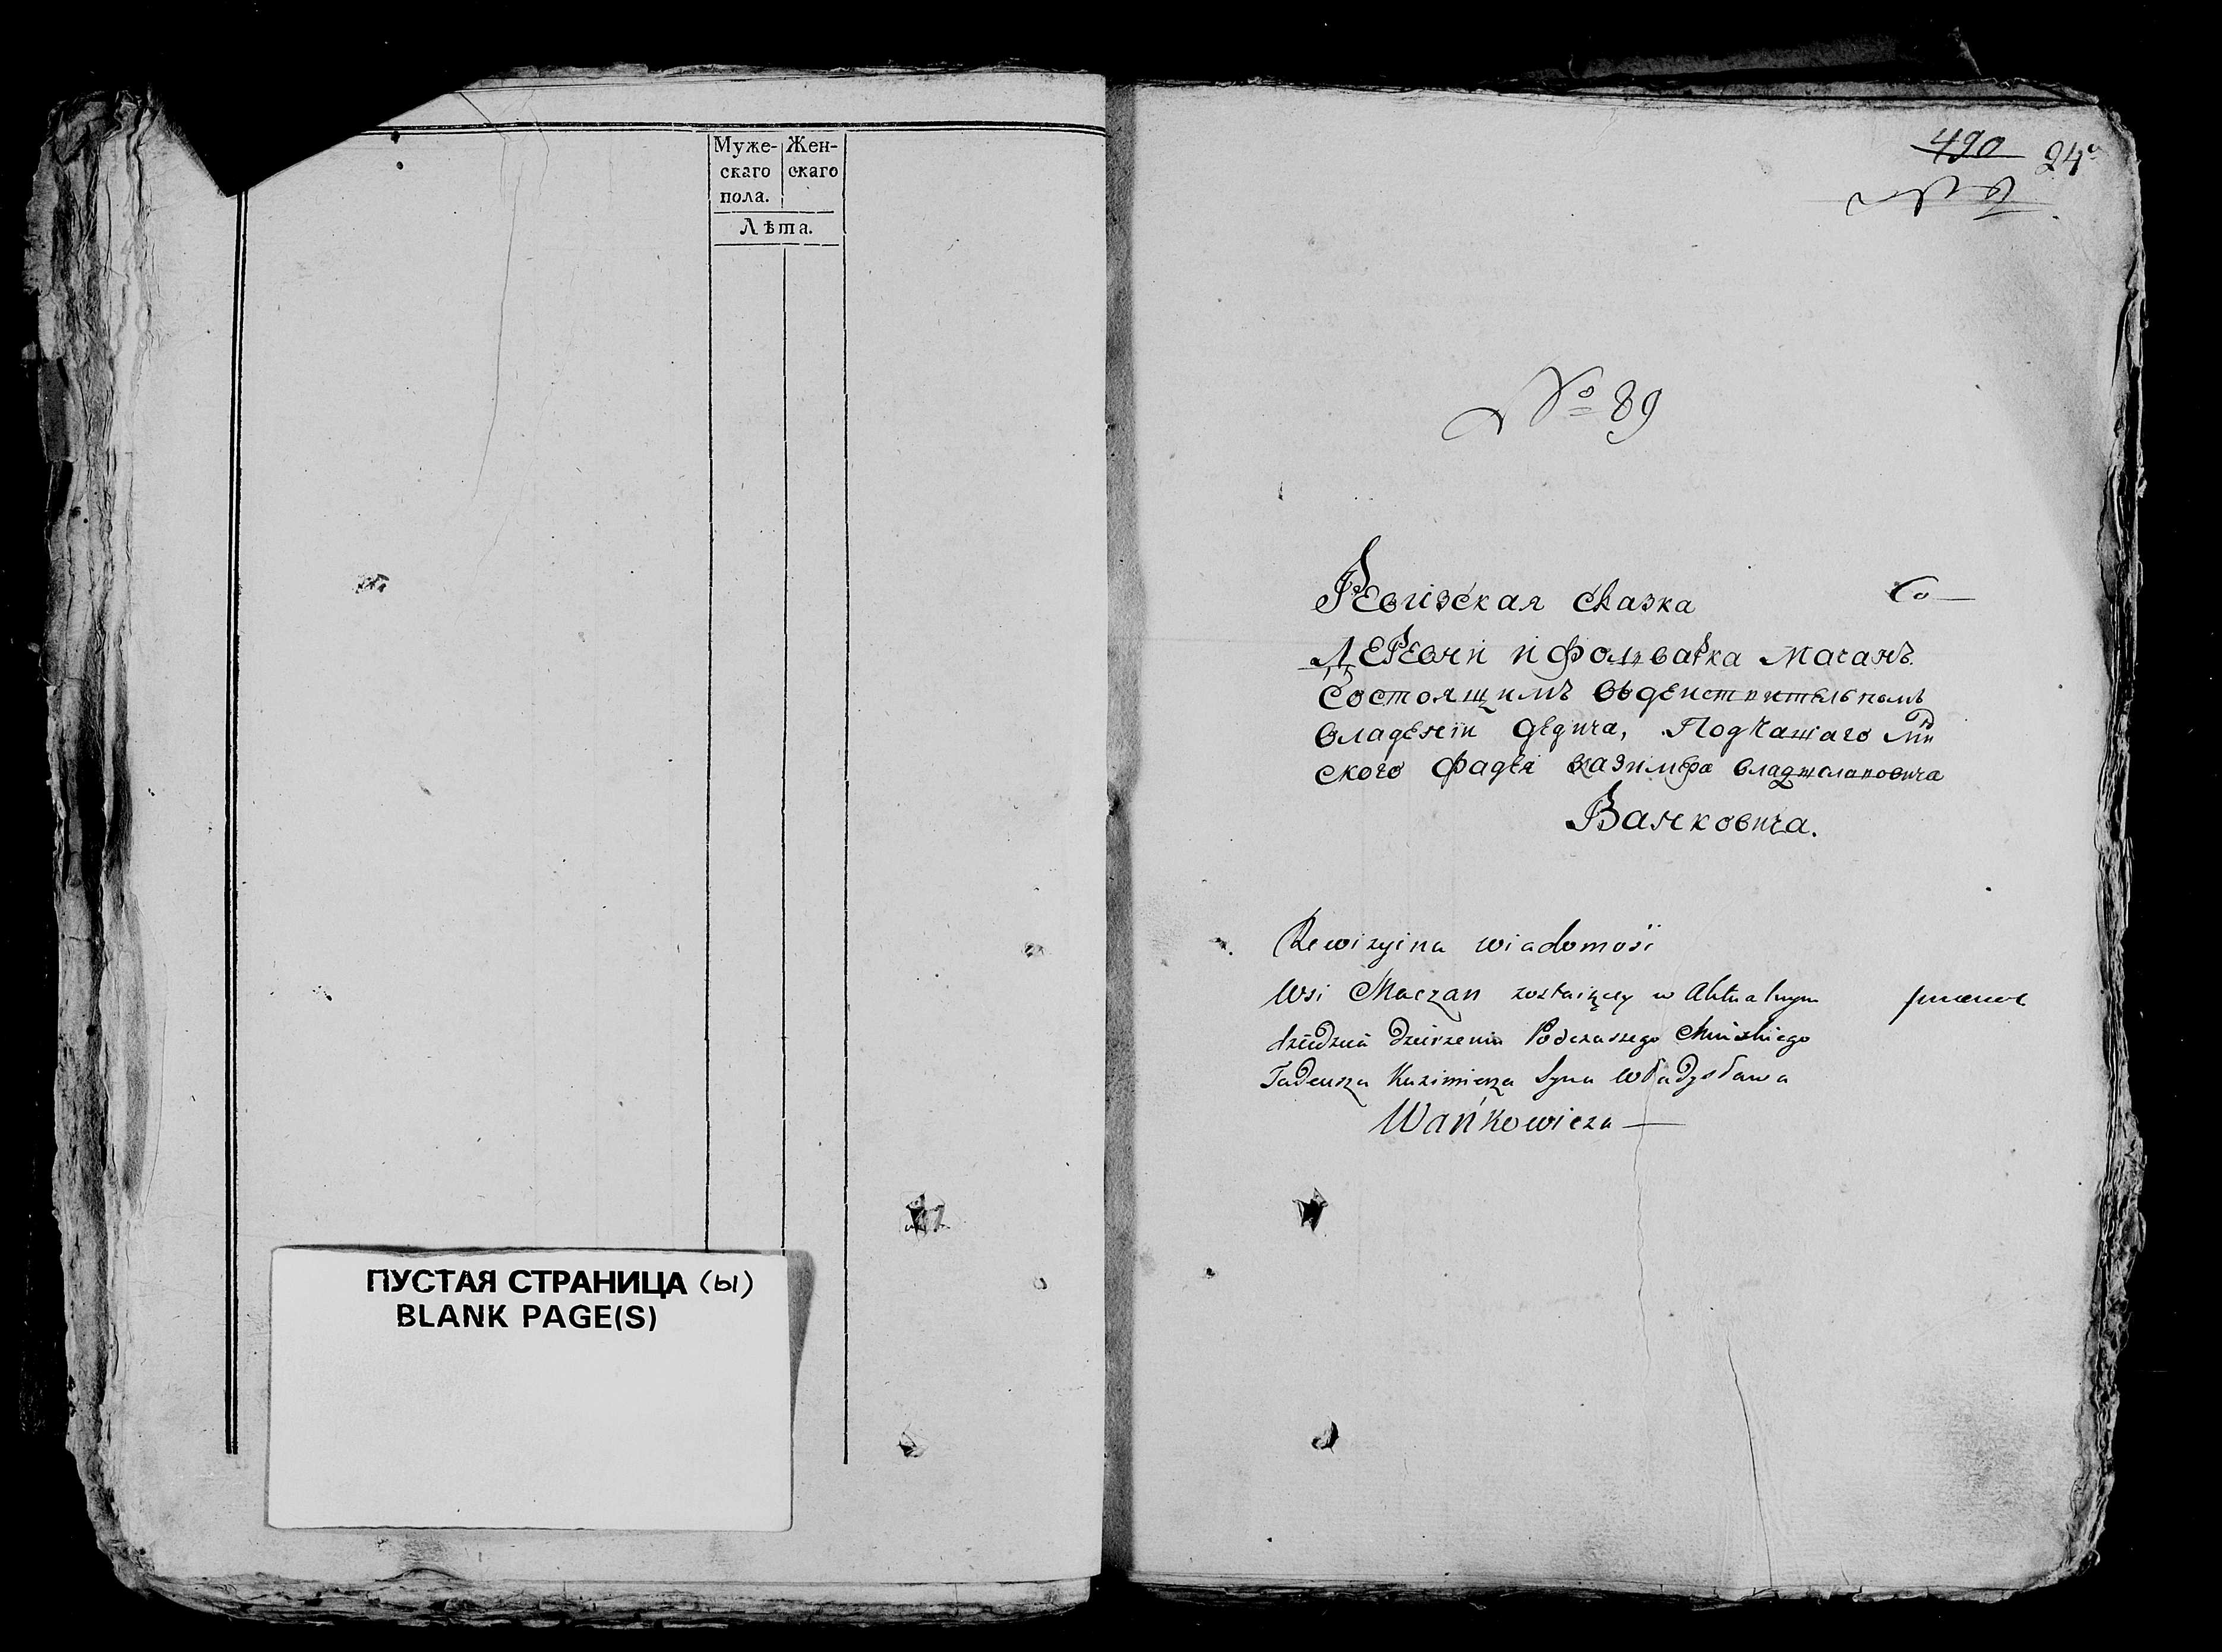 Муже- Жен-
скаго скаго
пола.
Лѣта.
ПУСТАЯ СТРАНИЦА (ы)
BLANK PAGE(S)
490 24
№ 89
Ревизская сказка Со—
Деревни и фольварка Мачанъ.
Состоящимъ въ действительномъ
владении дедича, Подчашаго Мин
ского Фадея Казимера Владиславовича
Ванковича.
Rewizyina wiadomość
Wsi Maczan zostaiącey w Aktualnym
dziedzica dzierzeniu Podczaszego Mińskiego
Tadeusza Kazimierza Syna Władysława
Wańkowicza—